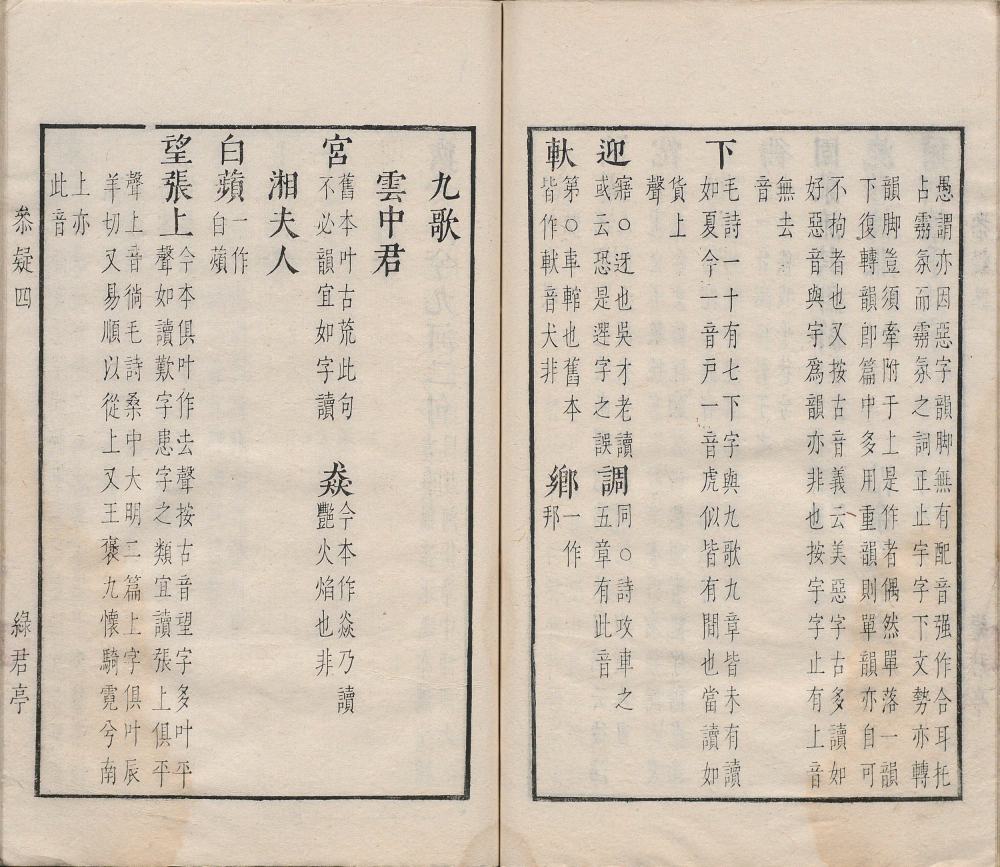 愚謂亦因惡字韻脚無有配音强作合耳托
占霧氛而霧氛之詞正止字字下文勢亦轉
韻脚豈須牽附于上是作者偶然單落一韻
下復轉韻卽篇中多用重韻則單韻亦自可
不拘者也又按古音義云美惡字古多讀如
好惡音與宇爲韻亦非也按宇字止有上音
無去
音
下毛詩一十有七下字與九歌九章皆未有讀
如夏今一音戸一音虎似皆有間也當讀如
貨上
聲
迎寤○迓也吳才老讀
或云恐是選字之誤
調同○詩攻車之
五章有此音
軑第○車輨也舊本
皆作軑音犬非
鄉一作
邦
九歌
雲中君
宮舊本叶古荒此句
不必韻宜如字讀
猋今本作焱乃讀
艷火焰也非
湘夫人
白蘋一作
白薠
望張上今本俱叶作去聲按古音望字多叶平
聲如讀歎字患字之類宜讀張上俱平
聲上音徜毛詩桑中大明二篇上字俱叶辰
羊切又易順以從上又王褒九懷騎霓兮南
上亦
此音
叅疑 四
綠君亭